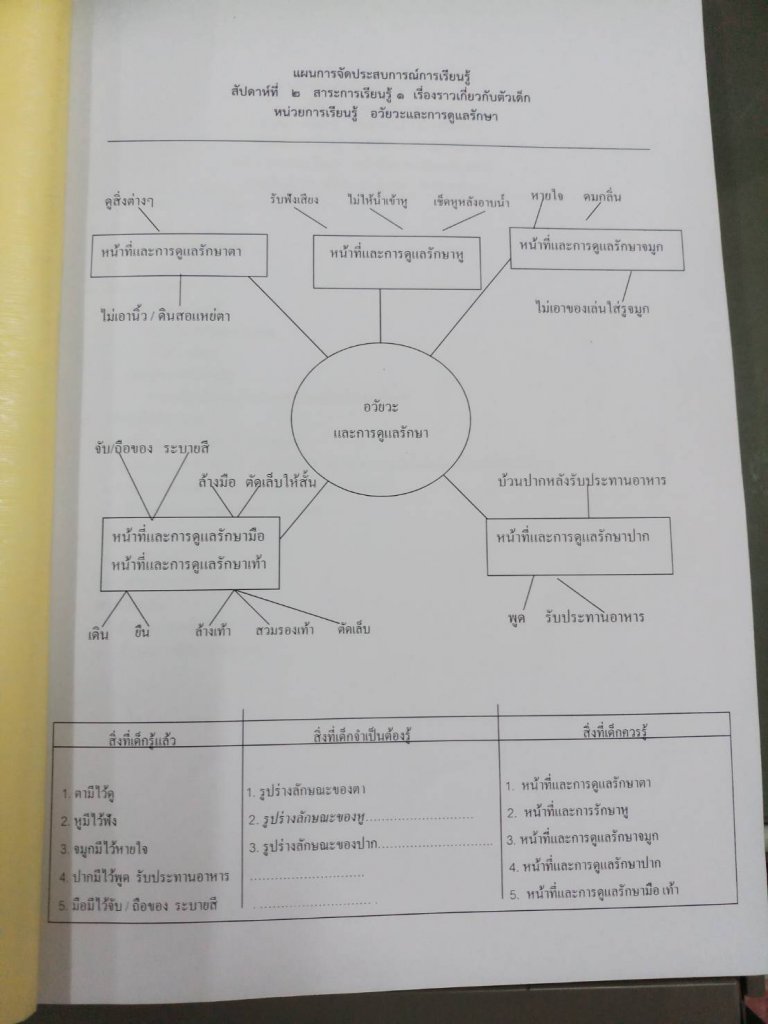 แผนการจัดประสบการณ์การเรียนรู้
สัปดาห์ที่ ๒ สาระการเรียนรู้ ๑ เรื่องราวเกี่ยวกับตัวเด็ก
หน่วยการเรียนรู้ อวัยวะและการดูแลรักษา
ดูสิ่งต่างๆ
รับฟังเสียง ไม่ให้น้ำเข้าหู เช็ดหูหลังอาบน้ำ
หายใจ ดมกลิ่น
หน้าที่และการดูแลรักษาตา
หน้าที่และการดูแลรักษาหู
หน้าที่และการดูแลรักษาจมูก
ไม่เอานิ้ว / ดินสอแหย่ตา
ไม่เอาของเล่นใส่รูจมูก
อวัยวะ
และการดูแลรักษา
จับ/ถือของ ระบายสี
ล้างมือ ตัดเล็บให้สั้น
บ้วนปากหลังรับประทานอาหาร
หน้าที่และการดูแลรักษามือ
หน้าที่และการดูแลรักษาเท้า
หน้าที่และการดูแลรักษาปาก
เดิน ยืน ล้างเท้า สวมรองเท้า ตัดเล็บ
พูด รับประทานอาหาร
สิ่งที่เด็กรู้แล้ว
1. ตามีไว้ดู
2. หูมีไว้ฟัง
3. จมูกมีไว้หายใจ
4. ปากมีไว้พูด รับประทานอาหาร
5. มือมีไว้จับ / ถือของ ระบายสี
สิ่งที่เด็กจำเป็นต้องรู้
1. รูปร่างลักษณะของตา
2. รูปร่างลักษณะของหู..............................
3. รูปร่างลักษณะของปาก..............................
สิ่งที่เด็กควรรู้
1. หน้าที่และการดูแลรักษาตา
2. หน้าที่และการรักษาหู
3. หน้าที่และการดูแลรักษาจมูก
4. หน้าที่และการดูแลรักษาปาก
5. หน้าที่และการดูแลรักษามือ เท้า